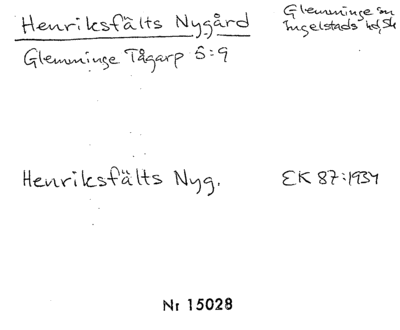 Henriksfälts Nygård
Glemminge sn
Ingelstads hd, Sk
Glemminge Tågarp 5:9
Henriksfälts Nyg.
EK 87:1934
Nr 15028